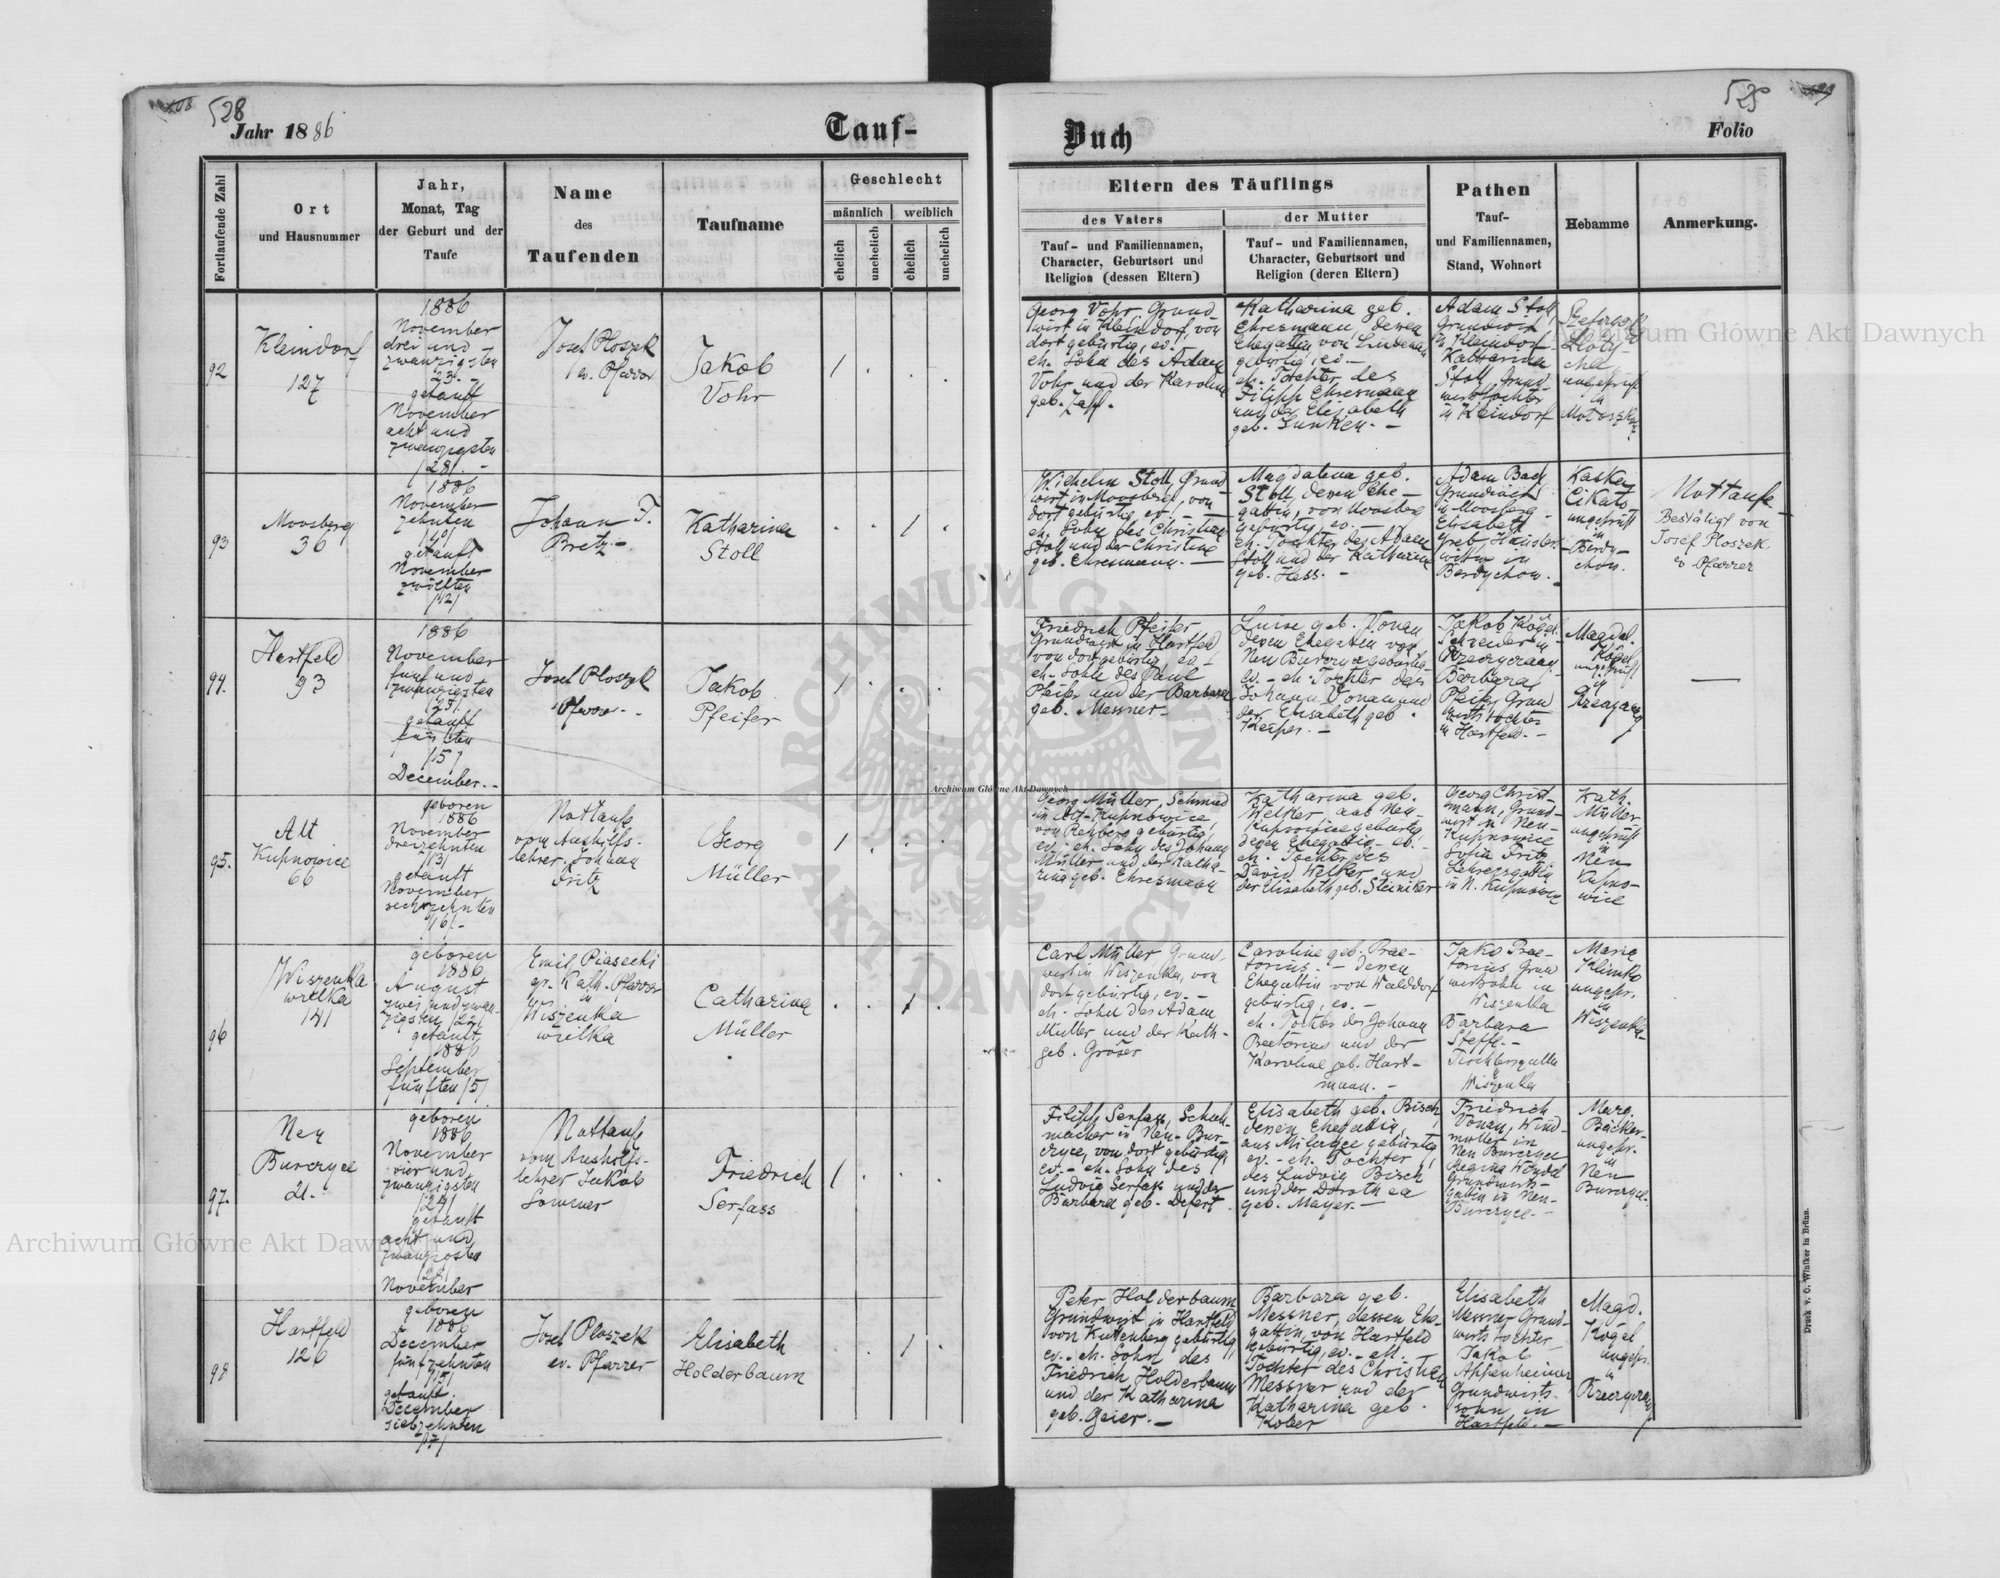 528
Jahr 1886
Tauf-
Fortlaufende Zahl
Ort
und Hausnummer
Jahr,
Monat, Tag
der Geburt und der
Taufe
Name
des
Taufenden
Taufname
Geschlecht
männlich
weiblich
ehelich
unehelich
ehelich
unehelich
92
Kleindorf
127
1886
November
drei und
zwanzigsten
23. -
getauft
November
acht und
zwanzigsten
/28/. -
Josef Ploszek
ev. Pfarrer
Jakob
Vohr
1 . . .
93
Moosberg
36
1886
November
zehnten
/10/
getauft
November
zwölften
/12/
Johann F.
Bretz. -
Katharina
Stoll
. . 1 .
94.
Hartfeld
93
1886
November
fünf und
zwanzigsten
/25/.
getauft
fünften
/5/
December. -
Josef Ploszek
Pfarrer. -
Jakob
Pfeifer
1 . . .
95.
Alt
Kupnowice
66
geboren
1886
November
dreizehnten
/13/
getauft
November
sechzehnten
/16/. -
Nottaufe
vom Aushilfs-
lehrer Johann
Fritz
Georg
Müller
1 . . .
96
Wiszenka
wielka
141
geboren
1886
August
zwei und zwan-
zigsten /22/
getauft
1886
September
fünften /5/
Emil Piasecki
gr. Kath. Pfarrer
in
Wiszenka
wielka
Catharina
Müller
. . 1 .
97.
Neu
Burczyce
21.-
geboren
1886
November
vier und
zwanzigsten
/24/
getauft
acht und
zwanzigsten
/28/
November
Nottaufe
vom Aushilfs-
lehrer Jakob
Sommer
Friedrich
Serfass
1 . . .
98
Hartfeld
126
geboren
1886
December
fünfzehnten
/15/
getauft.
December
siebzehnten
/17/
Josef Ploszek
ev. Pfarrer
Elisabeth
Holderbaum
. . 1 .
Buch
Folio
Eltern des Täuflings
des Vaters
Tauf- und Familiennamen,
Character, Geburtsort und
Religion (dessen Eltern)
der Mutter
Tauf- und Familiennamen,
Character, Geburtsort und
Religion (deren Eltern)
Pathen
Tauf-
und Familiennamen,
Stand, Wohnort
Hebamme
Anmerkung.
Georg Vohr, Grund-
wirt in Kleindorf, von
dort gebürtig, ev.,
eh. Sohn des Adam
Vohr und der Karolina
geb. Zapf.
Katharina geb.
Ehresmann, dessen
Ehegattin von Lindenau
gebürtig, ev. -
eh. Tochter des
Filipp Ehresmann
und der Elisabeth
geb. Sunken. -
Adam Stoll
Grundwirt
in Kleindorf
Katharina
Stoll Grund-
wirtstochter
in Kleindorf
ungeprüft
in
Wilhelm Stoll, Grund-
wirt in Moosberg, von
dort gebürtig, ev. -
eh. Sohn des Christian
Stoll und der Christine
geb. Ehresmann. -
Magdalena geb.
Stoll, dessen Ehe-
gattin, von Moosberg
gebürtig, ev. -
eh. Tochter des Adam
Stoll und der Katharina
geb. Hess. -
Adam Bach
Grundwirt
in Moosberg
Elisabeth
Greb, Häuslers-
wittwe in
Berdychow. -
Kaska
Cikalo
ungeprüft
in
Berdy-
chow.
Nottaufe
Bestätigt von
Josef Ploszek
ev Pfarrer
Friedrich Pfeifer
Grundwirt in Hartfeld,
von dort gebürtig, ev. -
eh. Sohn des Paul
Pfeifer und der Barbara
geb. Messner -
Luise geb. Vonau
dessen Ehegattin von
Neu Burczyce gebürtig
ev. - eh Tochter des
Johann Vonau und
der Elisabeth geb.
Keiper. -
Jakob Kögel
Schneider in
Rzeczyczany
Barbara
Pfeifer Grund-
wirtstochter
in Hartfeld. -
Magdal.
Kögel
ungeprüft
in
Georg Müller, Schmied
in Alt-Kupnowice,
von Rehberg gebürtig,
ev. - eh. Sohn des Johann
Müller und der Katha-
rina geb. Ehresmann
Katharina geb.
Welker aus Neu-
Kupnowice gebürtig,
dessen Ehegattin - ev. -
eh. Tochter des
David Welker und
der Elisabeth geb. Steiniker
Georg Christ-
mann, Grund-
wirt in Neu-
Kupnowice
Sofia Fritz
Lehrersgattin
in N. Kupnowice
Kath.
Müller
ungeprüft
in
Neu
Kupno-
wice
Carl Müller Grund-
wirt in Wiszenka, von
dort gebürtig, ev. -
eh. Sohn des Adam
Müller und der Kath-
geb. Gröser
Caroline geb. Prae-
torius. - dessen
Ehegattin von Walddorf
gebürtig, ev. -
eh. Tochter des Johann
Praetorius und der
Karoline geb. Hart-
mann. -
Jakob Prae-
torius, Grund-
wirtssohn in
Wiszenka
Barbara
Steffl. -
Tischlersgattin
in
Wiszenka
Marie
Klimko
ungepr.
in
Wiszenka -
Filipp Serfass, Schuh-
macher in Neu-Bur-
czyce, von dort gebürtig,
ev. - eh. Sohn des
Ludwig Serfass und der
Barbara geb. Defert.
Elisabeth geb. Bisch,
dessen Ehegattin,
aus Milatyce gebürtig,
ev. - eh. Tochter
des Ludwig Bisch
und der Dorothea
geb. Mayer. -
Friedrich
Vonau, Wind-
müller in
Neu Burczyce
Regina Wendel
Grundwirts-
gattin in Neu-
Burczyce. -
Marg.
Bäcker
ungepr.
in
Neu
Burczyce.
Peter Holderbaum
Grundwirt in Hartfeld,
von Kuttenberg gebürtig
ev. - eh. Sohn des
Friedrich Holderbaum
und der Katharina
geb. Geier. -
Barbara geb.
Messner, dessen Ehe-
gattin, von Hartfeld
gebürtig, ev. - eh.
Tochter des Christian
Messner und der
Katharina geb.
Kober
Elisabeth
Messner Grund-
wirtstochter
Jakob
Appenheimer
Grundwirts-
sohn in
Hartfeld. -
Magd.
Kögel
ungepr.
in
Rzeczyczany
Druck v. C. Winiker in Brünn.
Archiwum Główne Akt Dawnych
Archiwum Główne Akt Dawnych
Archiwum Główne Akt Dawnych
ARCHIWUM GŁÓWNE AKT DAWNYCH